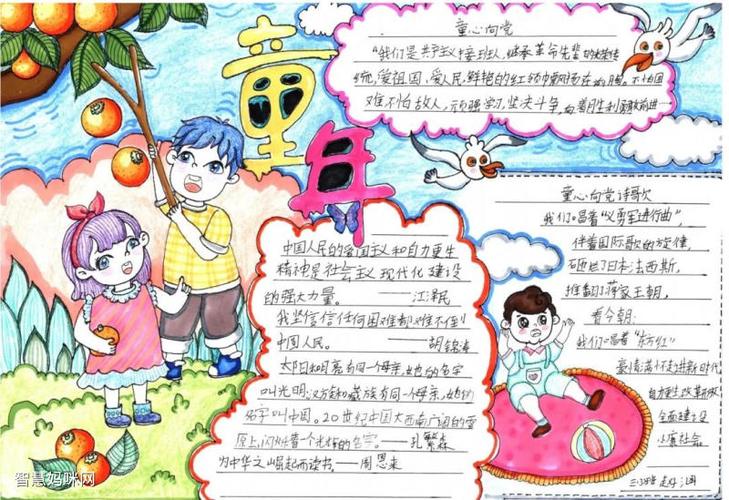 童年
童心向党
"我们是共产主义接班人,继承革命先辈的光荣传
统,爱祖国,爱人民,鲜艳的红领巾飘扬在前胸。不怕困
难不怕敌人,顽强学习,坚决斗争,向着胜利勇敢前进
中国人民的爱国主义和自力更生
精神是社会主义现代化建设
的强大力量。 ——江泽民
我坚信任何困难都难不倒
中国人民。 ——胡锦涛
太阳和月亮有同一个母亲,她的名字
叫光明;汉族和藏族有同一个母亲,她的
名字叫中国。20世纪中国大西南广阔的雪
原上,闪烁着一个光辉的名字。——孔繁森
为中华之崛起而读书。——周恩来
童心向党诗歌
我们唱着"义勇军进行曲",
伴着国际歌的旋律,
砸烂了日本法西斯,
推翻了蒋家王朝,
看今朝:
我们唱着"东方红"
豪情满怀走进新时代
自力更生改革开放
全面建设
小康社会。
智慧妈咪网